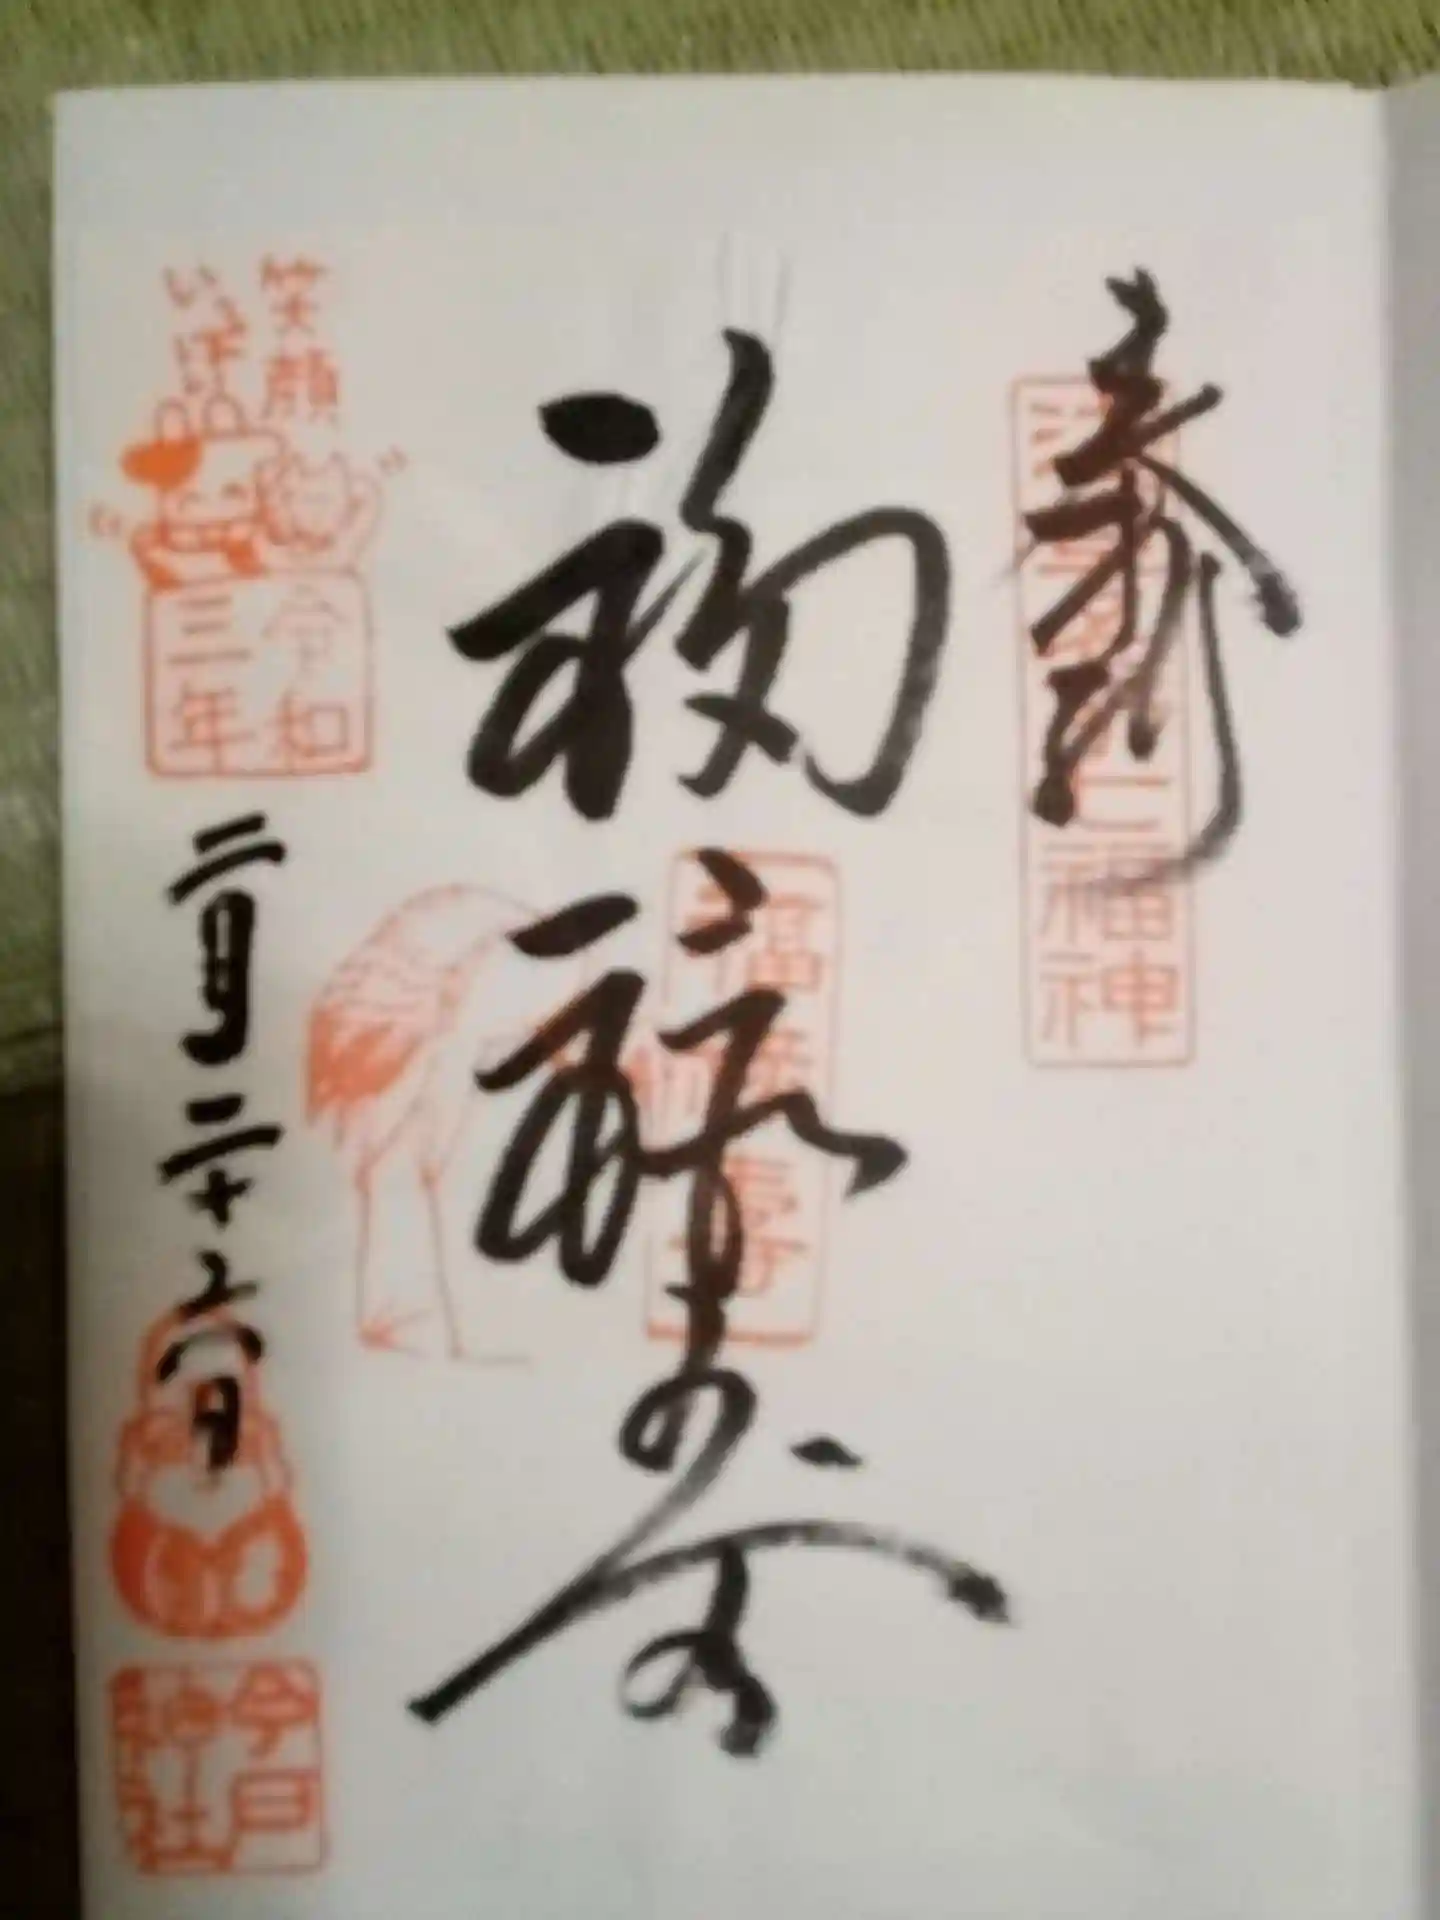 奉拝
浅草名所七福神
福禄寿
福禄寿
笑顔
いっぱい
令和
三年
二月二十六日
今戸
神社